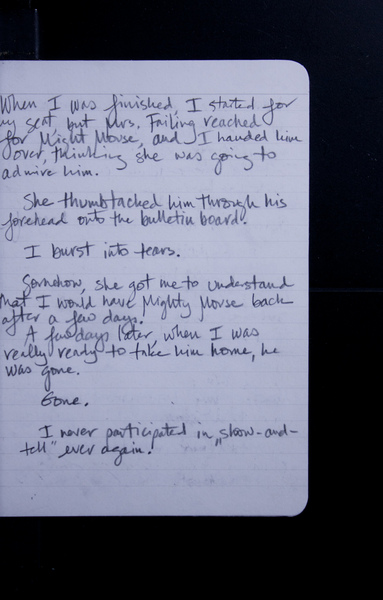 When I was finished, I started for
my seat but Mrs. Failing reached
for Might Mouse, and I handed him
over, thinking she was going to
admire him.
She thumbtacked him through his
forehead onto the bulletin board.
I burst into tears.
Somehow, she got me to understand
that I would have Mighty Morse back
after a few days.
A few days later, when I was
really ready to take him home, he
was gone.
Gone.
I never participated in „show-and-
tell" ever again.